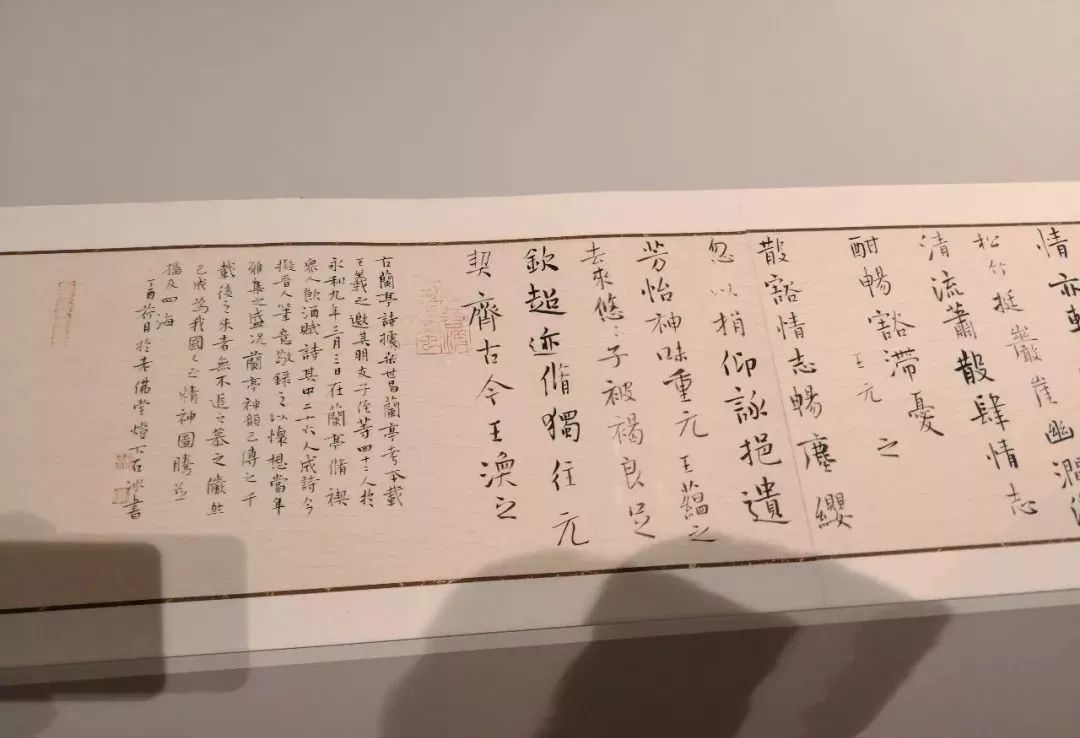 情亦暢
松竹挺巖崖幽澗激
清流蕭散肆情志
酣暢豁滯憂
王元之
散豁情志暢塵纓
忽以捐仰詠挹遺
芳怡神味重元王蘊之
去來悠:子被褐良足
欽超迹脩獨往元
契齊古今王渙之
古蘭亭詩據桑世昌蘭亭考本載
王羲之邀其朋友子侄等四十二人於
永和九年三月三日在蘭亭脩禊
衆人飲酒賦詩其中二十六人成詩今
擬晉人筆意敬錄之以懷想當年
雅集之盛况蘭亭神韻已傳之千
載後之來者無不追之慕之儼然
已成為我國人之精神圖騰並
播及四海
丁酉荷月於老佛堂燈下石冰書